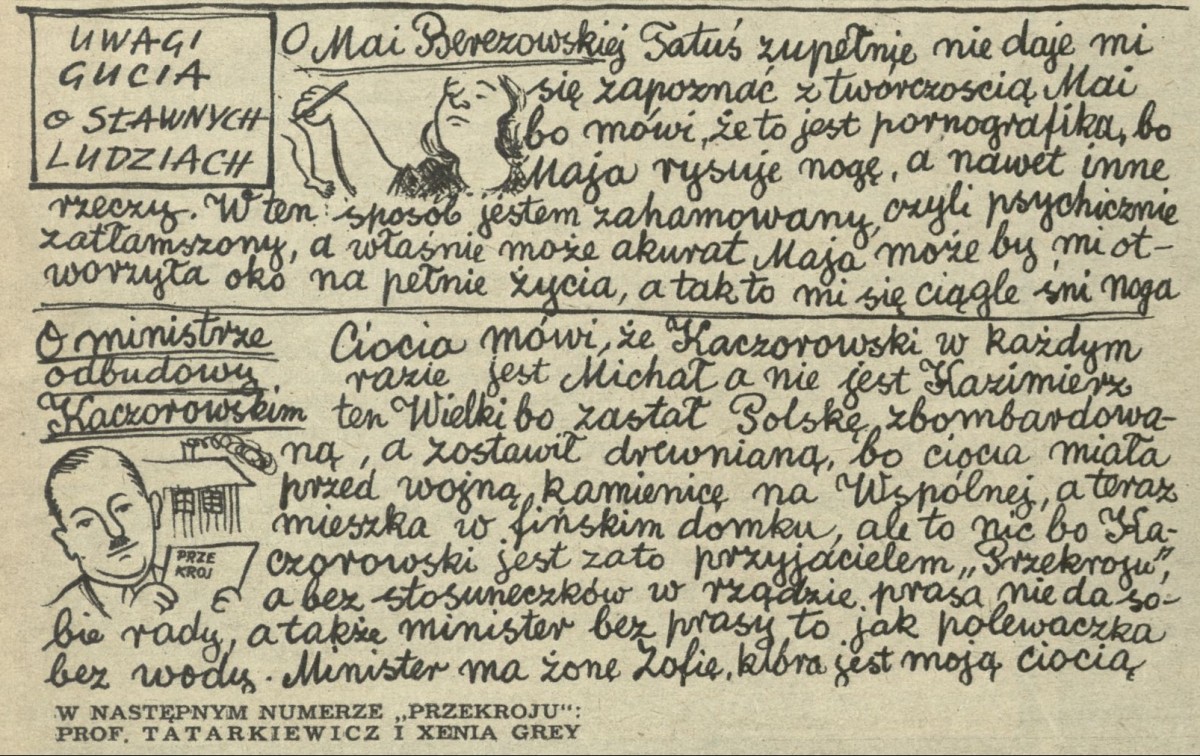 UWAGI
GUCIA
O SŁAWNYCH
LUDZIACH
O Mai Berezowskiej Tatuś zupełnie nie daje mi
się zapoznać z twórczością Mai
bo mówi, że to jest pornografika, bo
Maja rysuje nogę, a nawet inne
rzeczy. W ten sposób jestem zahamowany, czyli psychicznie
zatłamszony, a właśnie może akurat Maja może by mi ot-
worzyła oko na pełnie życia, a tak to mi się ciągle śni noga
O ministrze
odbudowy
Kaczorowskim
Ciocia mówi, że Kaczorowski w każdym
razie jest Michał a nie jest Kazimierz
ten Wielki bo zastał Polskę zbombardowa-
ną, a zostawił drewnianą, bo ciocia miała
przed wojną kamienicę na Wspólnej, a teraz
mieszka w fińskim domku, ale to nic bo Ka-
czorowski jest zato przyjacielem „Przekroju",
a bez stosuneczków w rządzie prasa nie da so-
bie rady, a także minister bez prasy to jak polewaczka
bez wody. Minister ma żonę Zofię, która jest moją ciocią
PRZE
KROJ
W NASTĘPNYM NUMERZE „PRZEKROJU":
PROF. TATARKIEWICZ I XENIA GREY